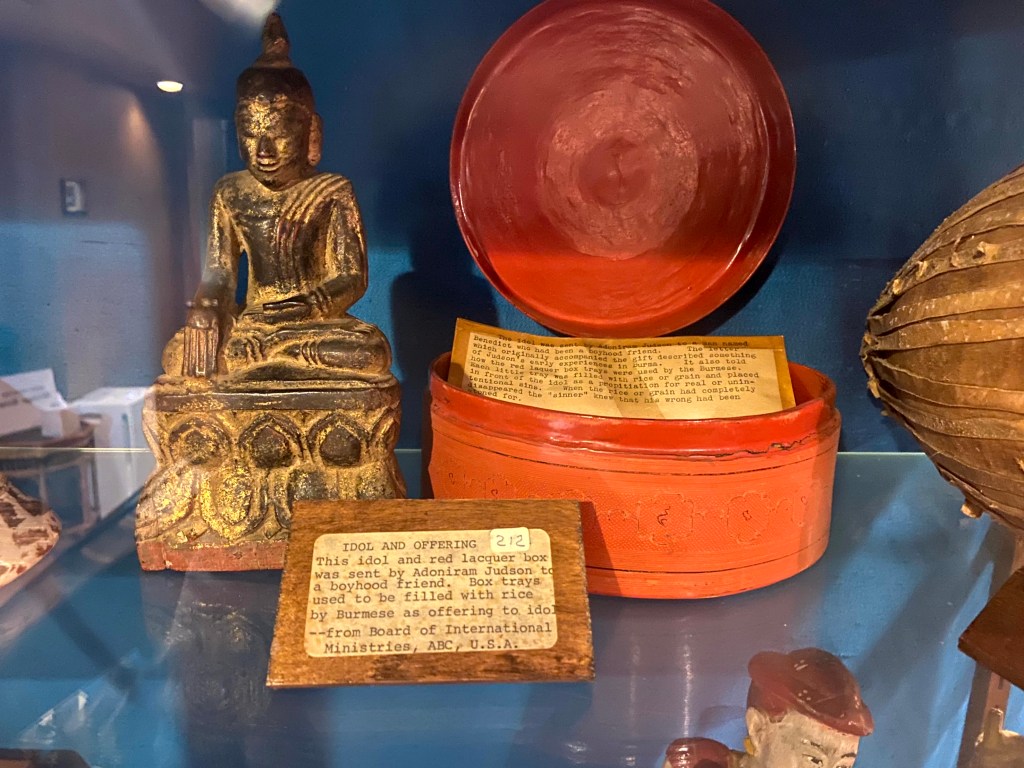 The idol was sent by Adoniram Judson to a man named
Benedict who had been a boyhood friend. The letter
which originally accompanied this gift described something
of Judson's early experiences in Burma. It also told
how the red lacquer box trays were used by the Burmese.
Each little tray was filled with rice or grain and placed
in front of the idol as a propitiation for real or unin-
tentional sins. When the rice or grain had completely
disappeared the "sinner" knew that his wrong had been
toned for.
IDOL AND OFFERING 212
This idol and red lacquer box
was sent by Adoniram Judson to
a boyhood friend. Box trays
used to be filled with rice
by Burmese as offering to idol
--from Board of International
Ministries, ABC, U.S.A.